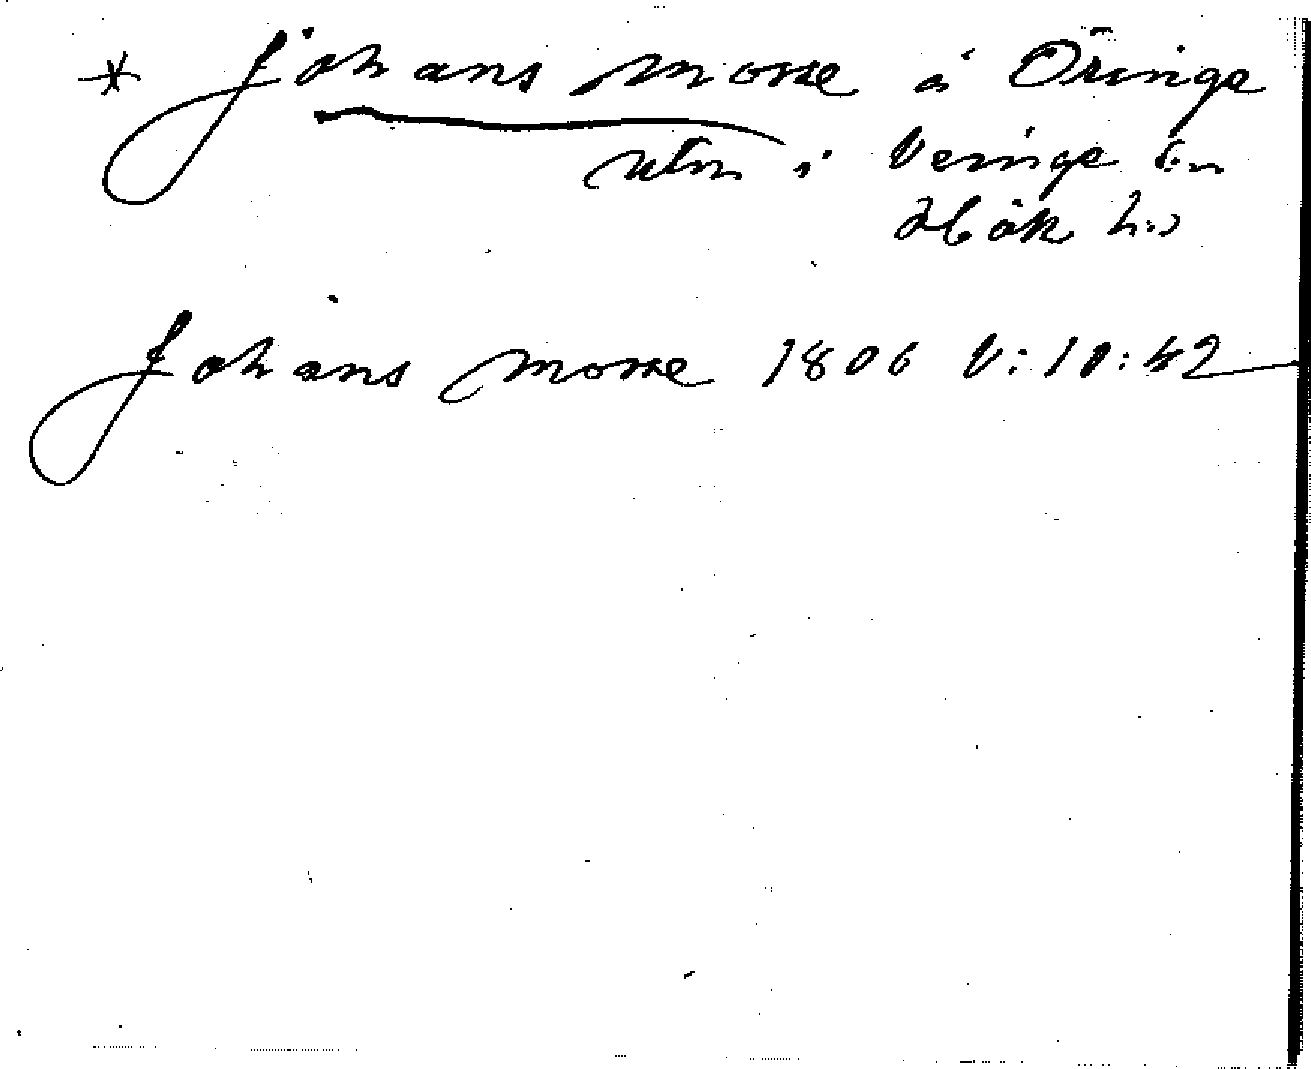 * Johans mosse å Öringe
utm i Veinge sn
Hök hd
Johans mosse 1806 V:10:42